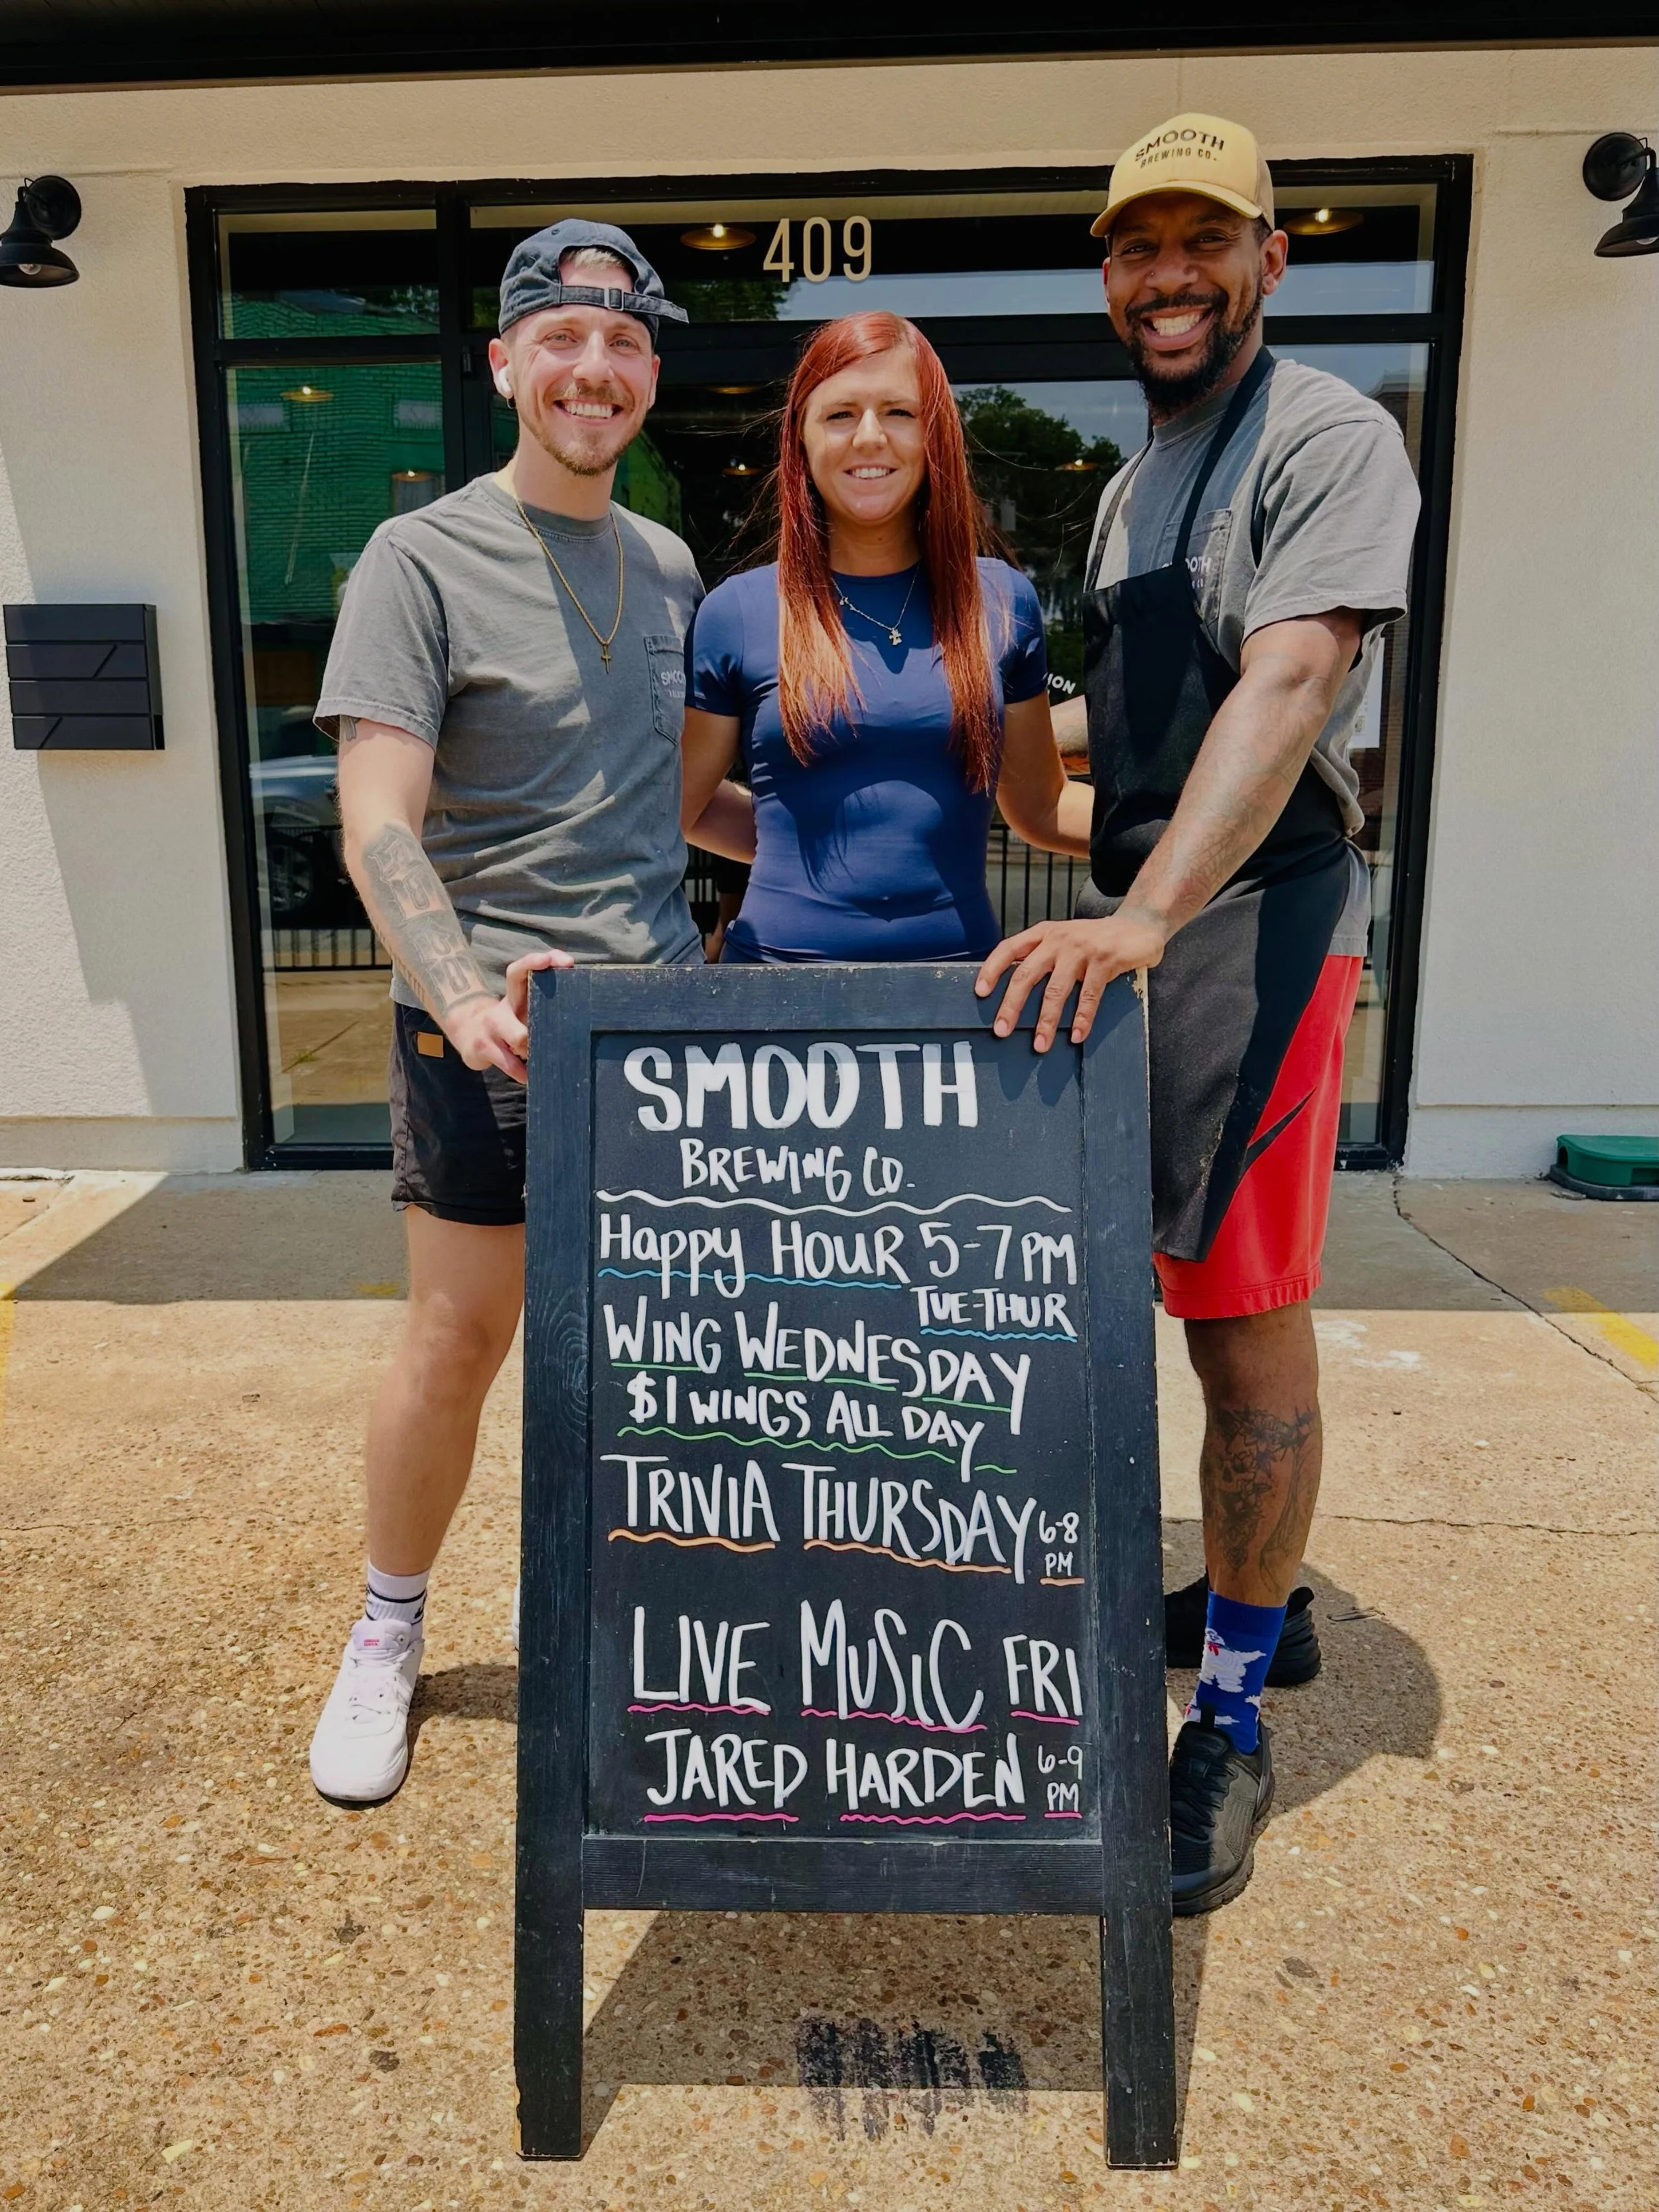 SMOOTH
BREWING CO.
409
SMOOTH
ION
SMOOTH
BREWING CO.
Happy HOUR 5-7PM
TUE-THUR
WING WEDNESDAY
$1 WINGS ALL DAY
TRIVIA THURSDAY 6-8
PM
LIVE MUSIC FRI
JARED HARDEN 6-9
PM